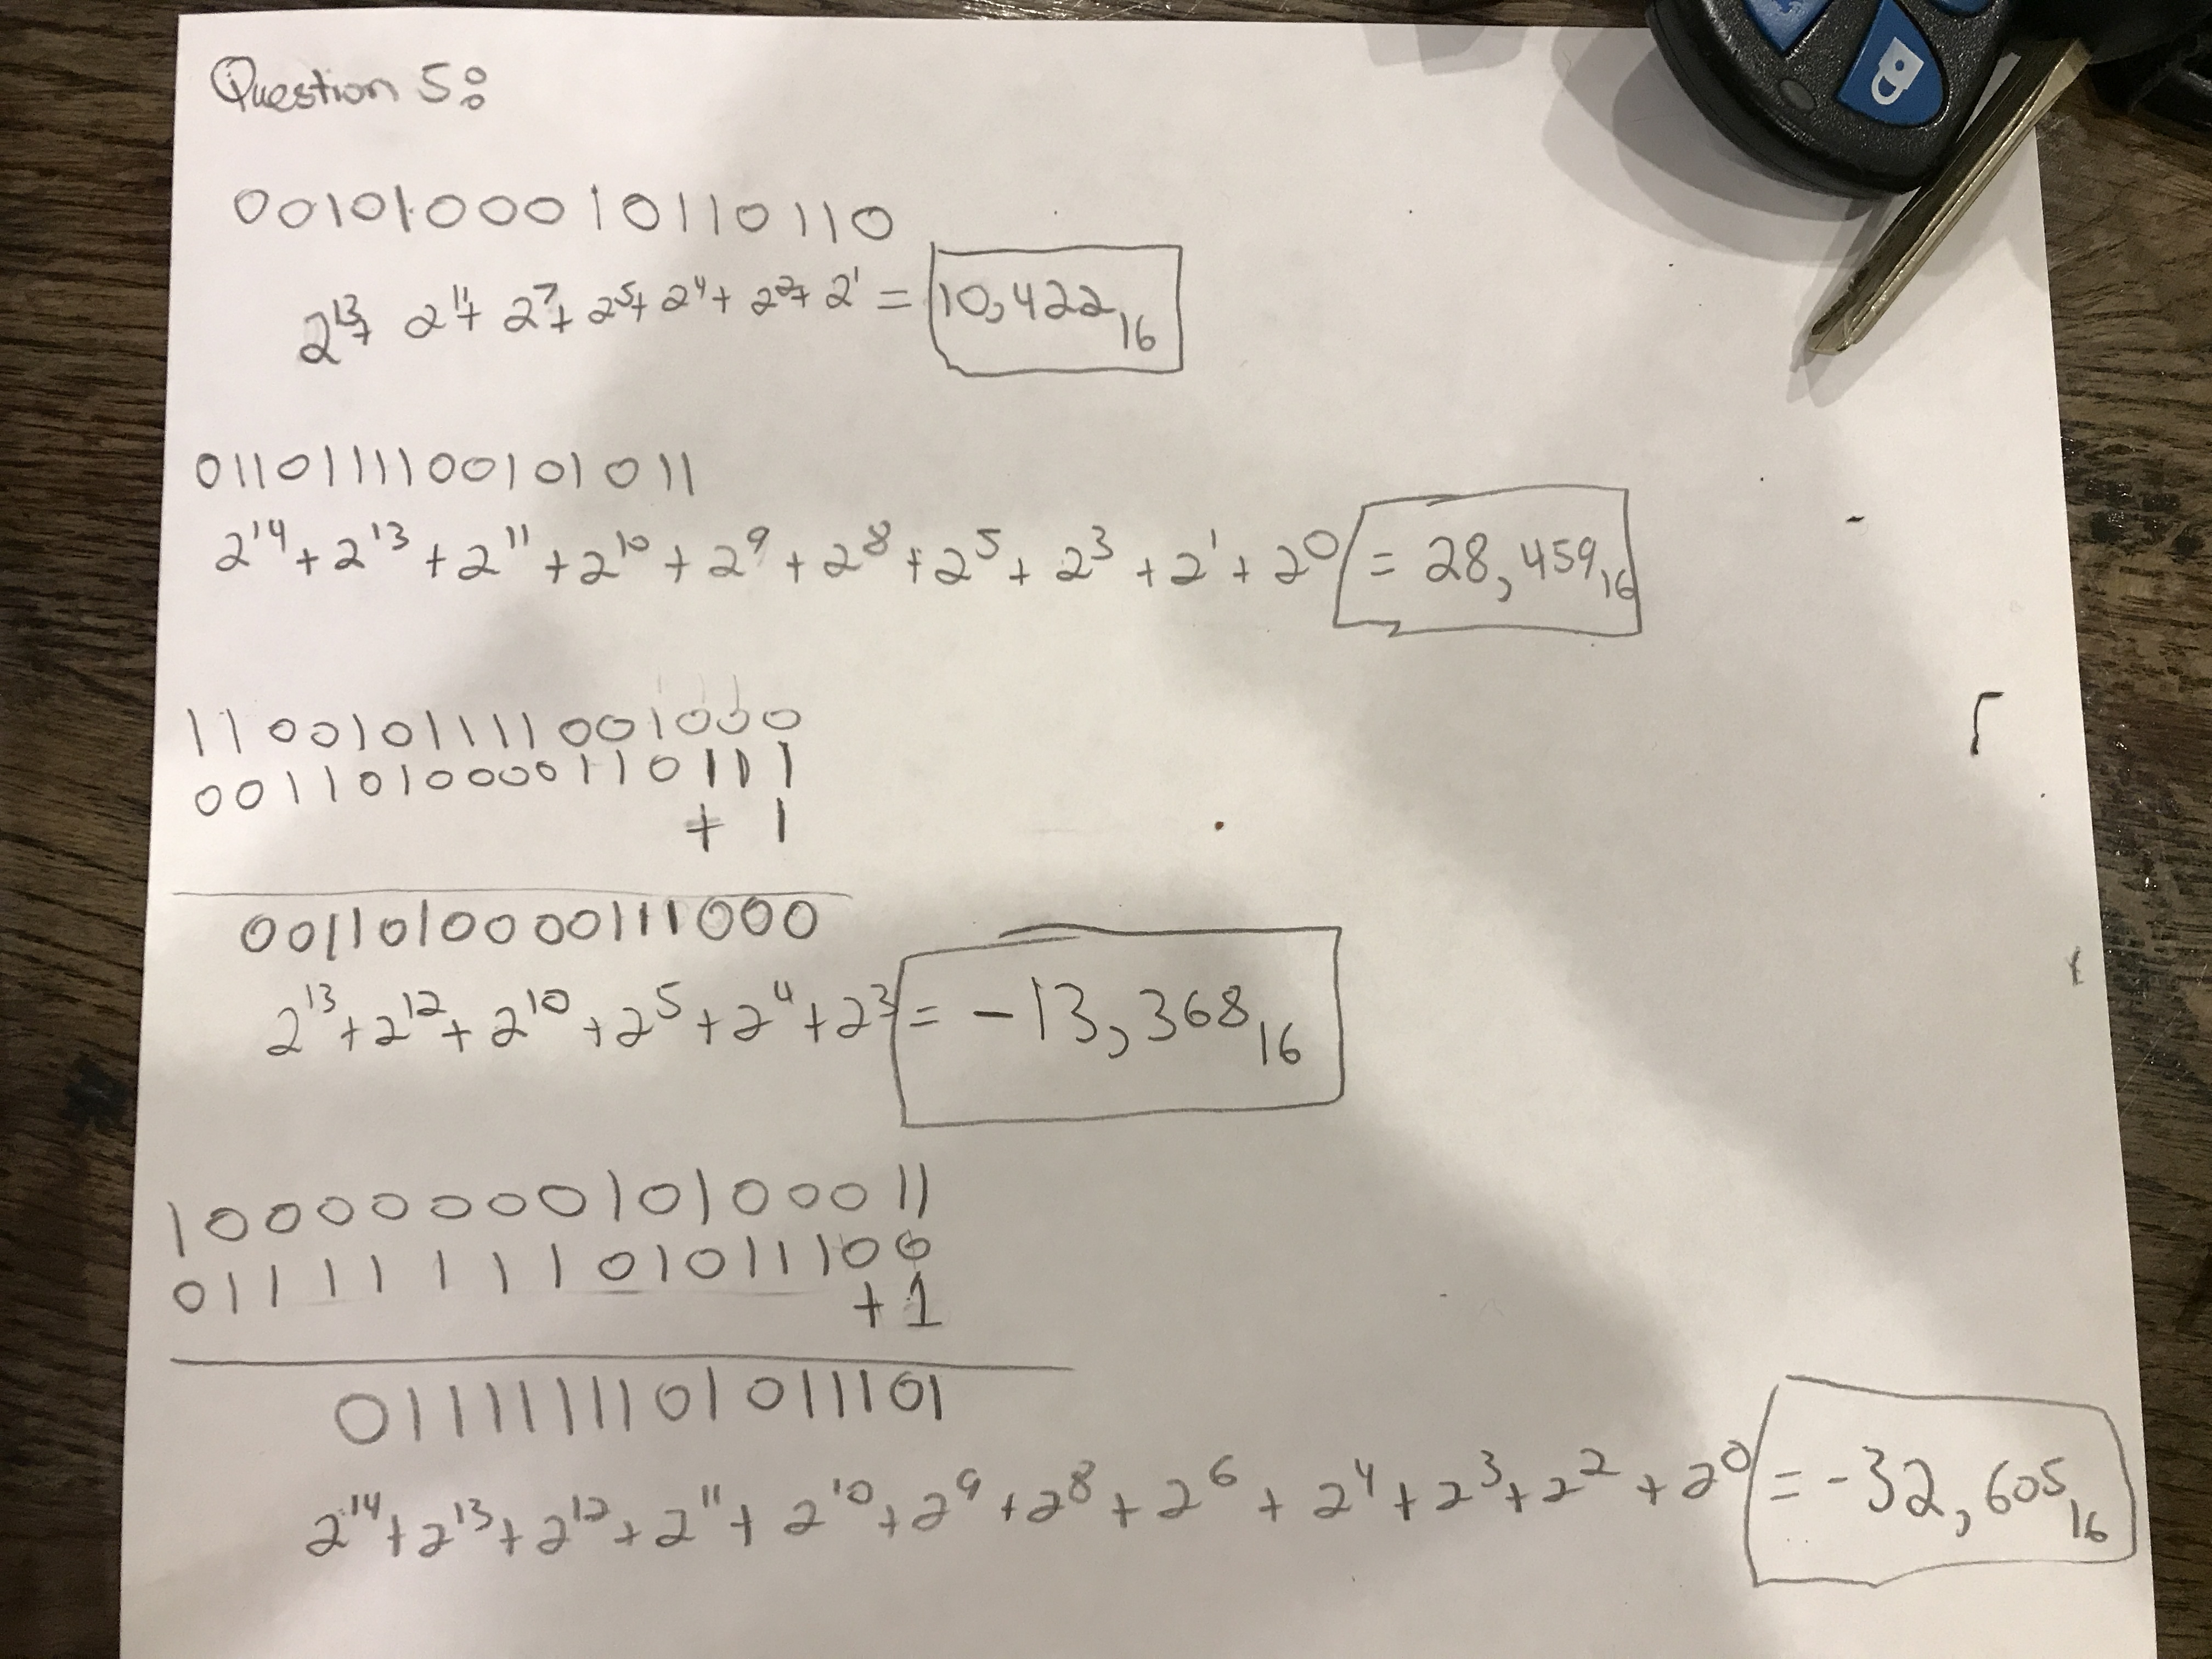 Question 5:
0010100010110110
2¹³+ 2¹¹+ 2⁷+ 2⁵+ 2⁴+ 2²+ 2¹ = 10,422₁₆
0110111100101011
2¹⁴ + 2¹³ + 2¹¹ + 2¹⁰ + 2⁹ + 2⁸ + 2⁵ + 2³ + 2¹ + 2⁰ = 28,459₁₆
1100101111001000
0011010000110111
+ 1
0011010000111000
2¹³ + 2¹² + 2¹⁰ + 2⁵ + 2⁴ + 2³ = -13,368₁₆
1000000010100011
0111111101011100
+ 1
0111111101011101
2¹⁴ + 2¹³ + 2¹² + 2¹¹ + 2¹⁰ + 2⁹ + 2⁸ + 2⁶ + 2⁴ + 2³ + 2² + 2⁰ = -32,605₁₆